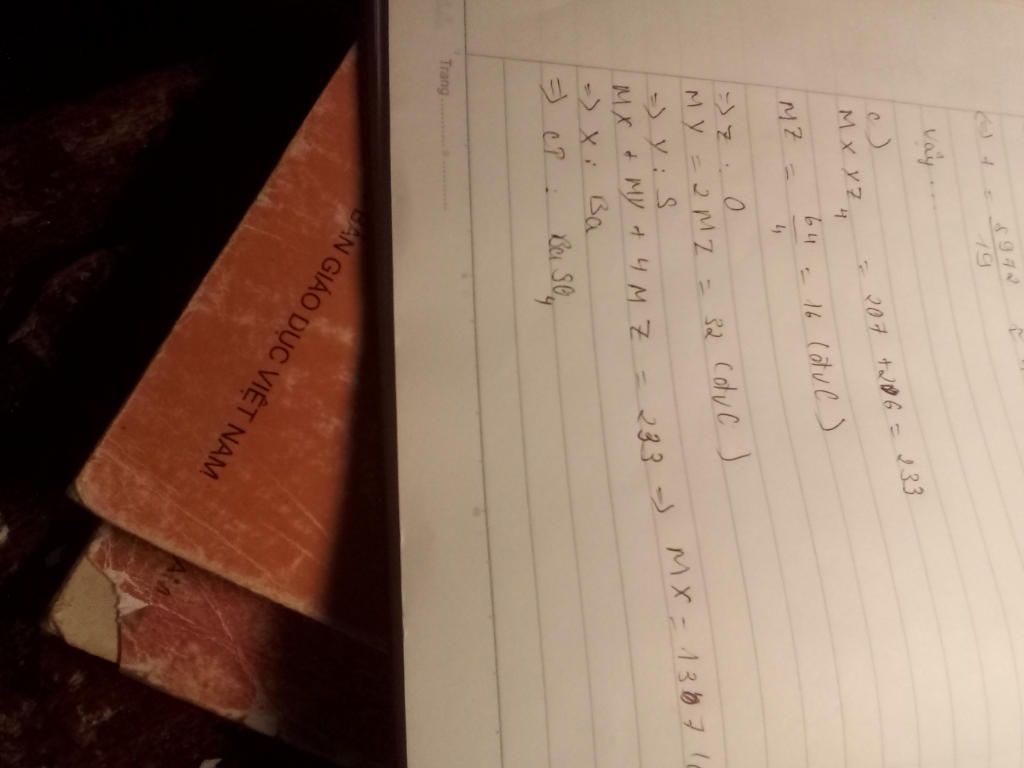 (1) + = 5972 / 19
Vậy ...
c)
MXYZ4 = 207 + 26 = 233
MZ = 64 / 4 = 16 (đvC)
=> Z : O
MY = 2MZ = 32 (đvC)
=> Y : S
MX + MY + 4MZ = 233 => MX = 137 (
=> X : Ba
=> CT : BaSO4
Trang
BẢN GIÁO DỤC VIỆT NAM